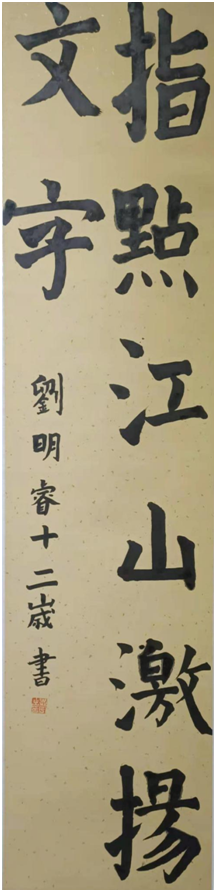 指點江山激揚
文字
劉明睿十二歲書